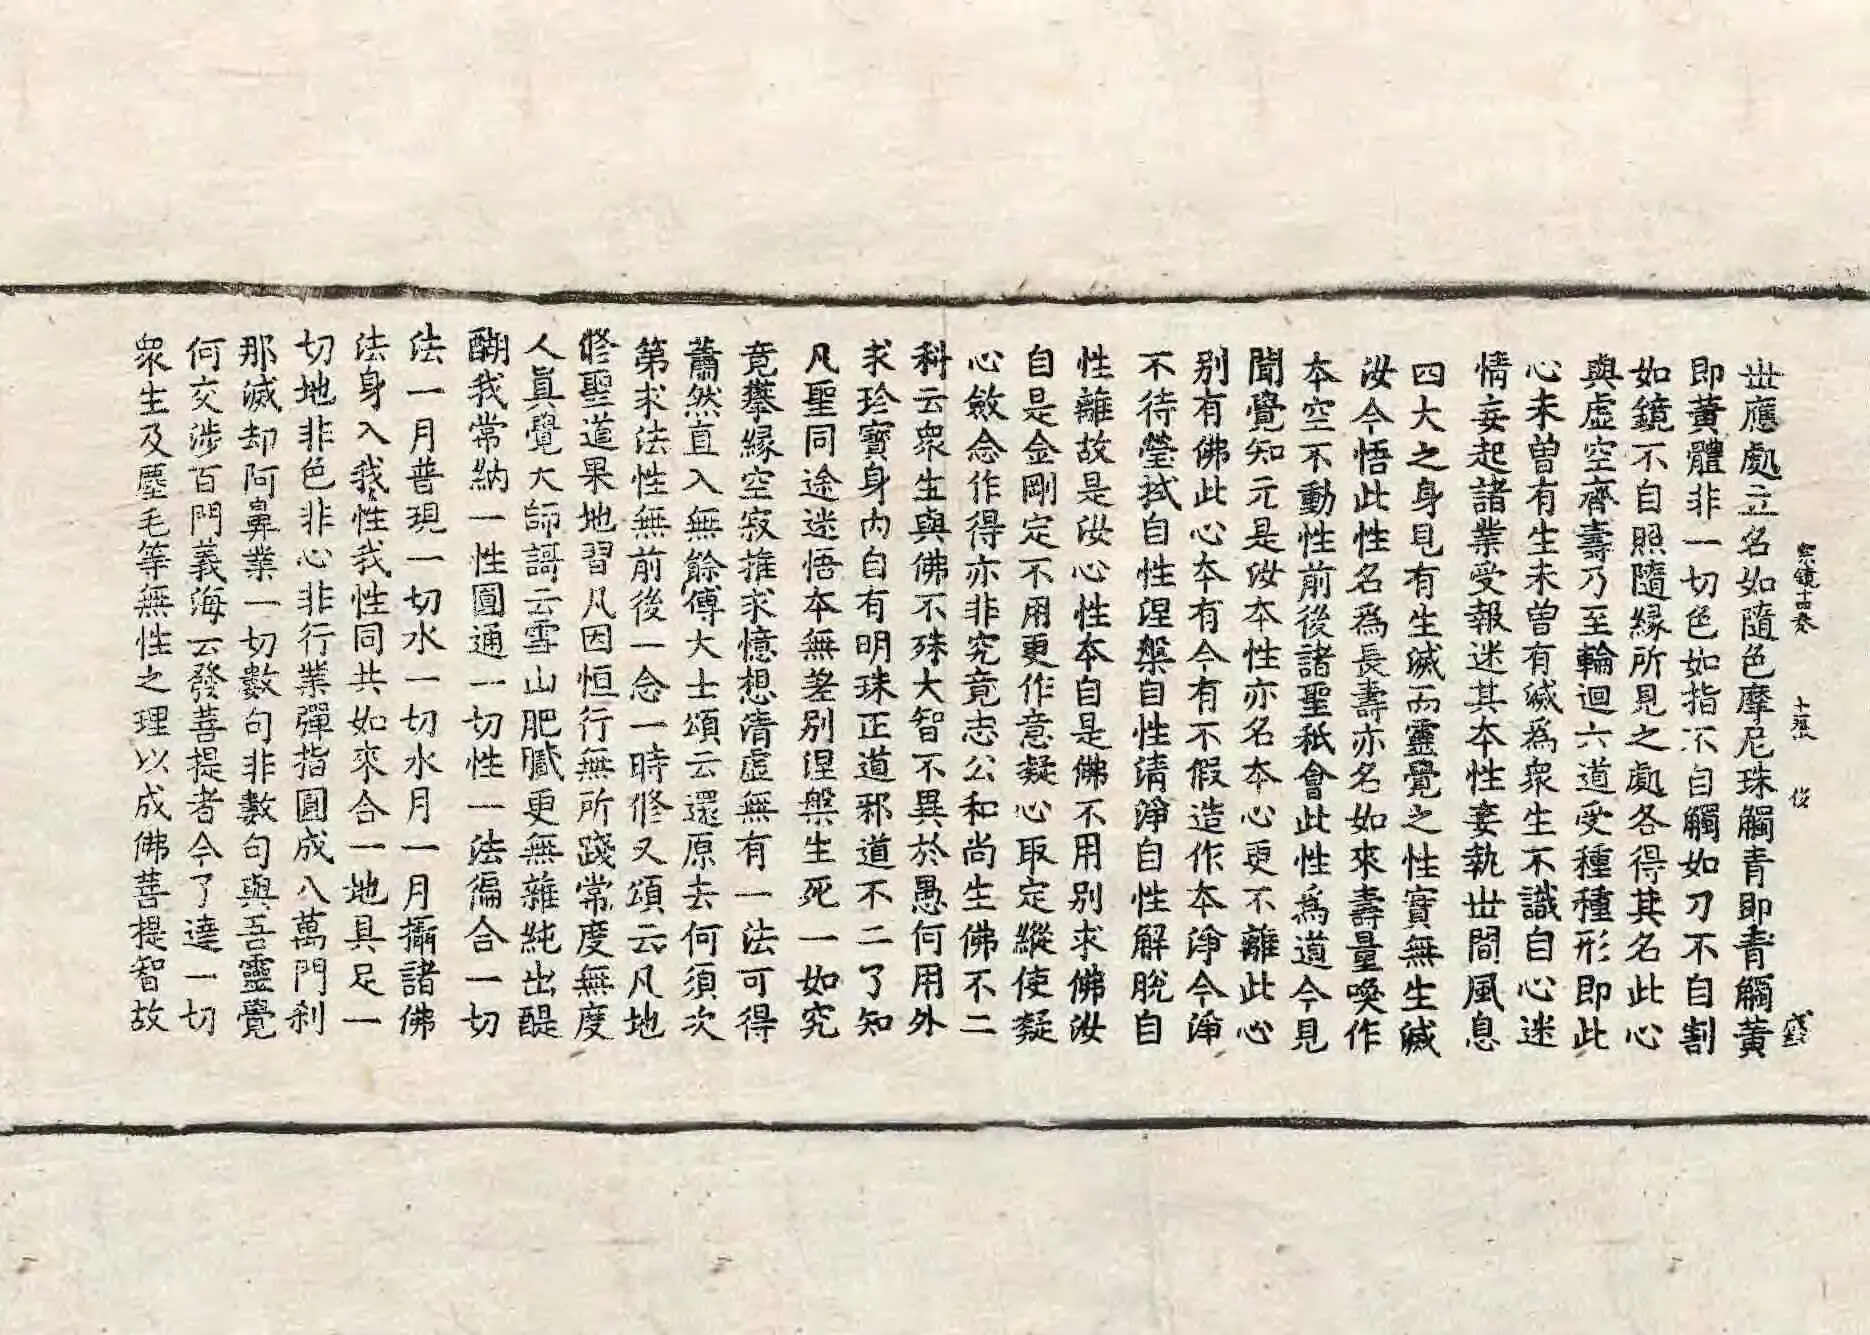 宗鏡十四卷 十張 俊
世應處立名如隨色摩尼珠觸青即青觸黃
即黃體非一切色如指不自觸如刀不自割
如鏡不自照隨緣所見之處各得其名此心
與虛空齊壽乃至輪迴六道受種種形即此
心未曾有生未曾有滅爲衆生不識自心迷
情妄起諸業受報迷其本性妄執世間風息
四大之身見有生滅而靈覺之性實無生滅
汝今悟此性名爲長壽亦名如來壽量喚作
本空不動性前後諸聖秖會此性爲道今見
聞覺知元是汝本性亦名本心更不離此心
別有佛此心本有今有不假造作本淨今淨
不待瑩拭自性涅槃自性清淨自性解脫自
性離故是汝心性本自是佛不用別求佛汝
自是金剛定不用更作意凝心取定縱使凝
心斂念作得亦非究竟志公和尚生佛不二
科云衆生與佛不殊大智不異於愚何用外
求珍寶身內自有明珠正道邪道不二了知
凡聖同途迷悟本無差別涅槃生死一如究
竟攀緣空寂推求憶想清虛無有一法可得
蕭然直入無餘傅大士頌云還原去何須次
第求法性無前後一念一時修又頌云凡地
修聖道果地習凡因恒行無所踐常度無度
人眞覺大師謌云雪山肥膩更無雜純出醍
醐我常納一性圓通一切性一法徧合一切
法一月普現一切水一切水月一月攝諸佛
法身入我性我性同共如來合一地具足一
切地非色非心非行業彈指圓成八萬門刹
那滅却阿鼻業一切數句非數句與吾靈覺
何交涉百門義海云發菩提者今了達一切
衆生及塵毛等無性之理以成佛菩提智故